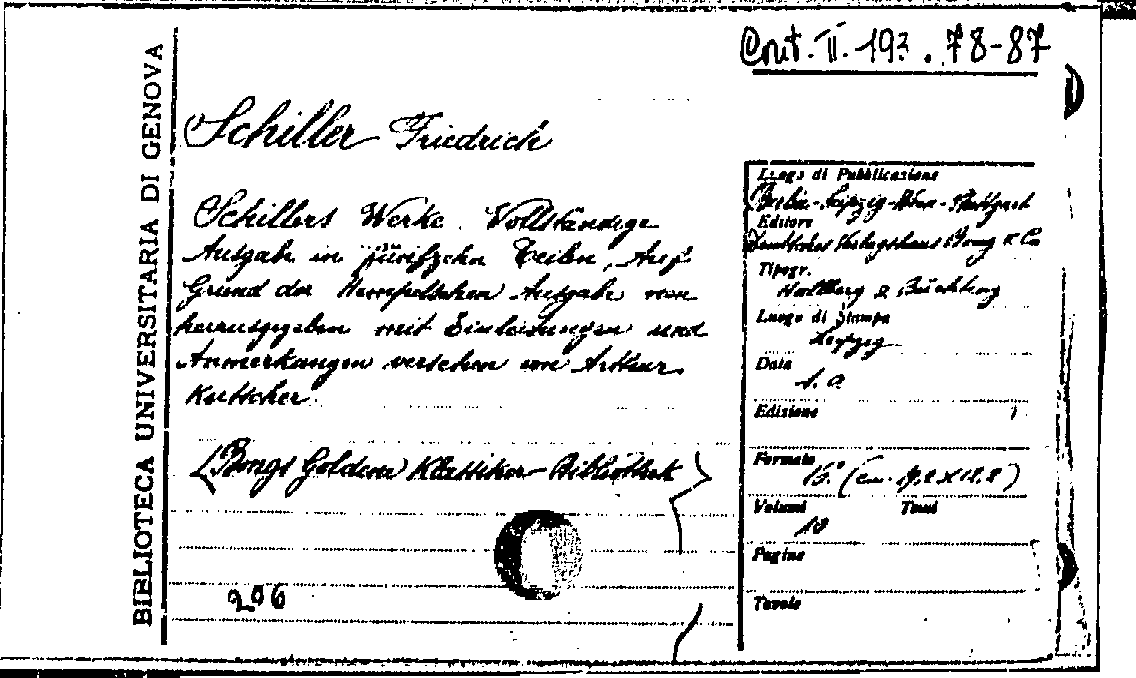 Cout. II. 193. 78-87
BIBLIOTECA UNIVERSITARIA DI GENOVA
Schiller Friedrich
Schillers Werke. Vollständige
Ausgabe in fünfzehn Teilen, Auf
Grund der Hempelschen Ausgabe von
herausgegeben mit Einleitungen und
Anmerkungen versehen von Arthur
Kutscher.
(Bongs Goldene Klassiker-Bibliothek
296
Luogo di Pubblicazione
Berlin-Leipzig-Wien-Stuttgart
Editore
Deutsches Verlagshaus Bong & Co
Tipogr.
Hallberg & Büchting
Luogo di Stampa
Leipzig
Data
s. a.
Edizione
Formato
16° (cm. 19,2 X 12,8)
Volumi Tomi
10
Pagine
Tavole